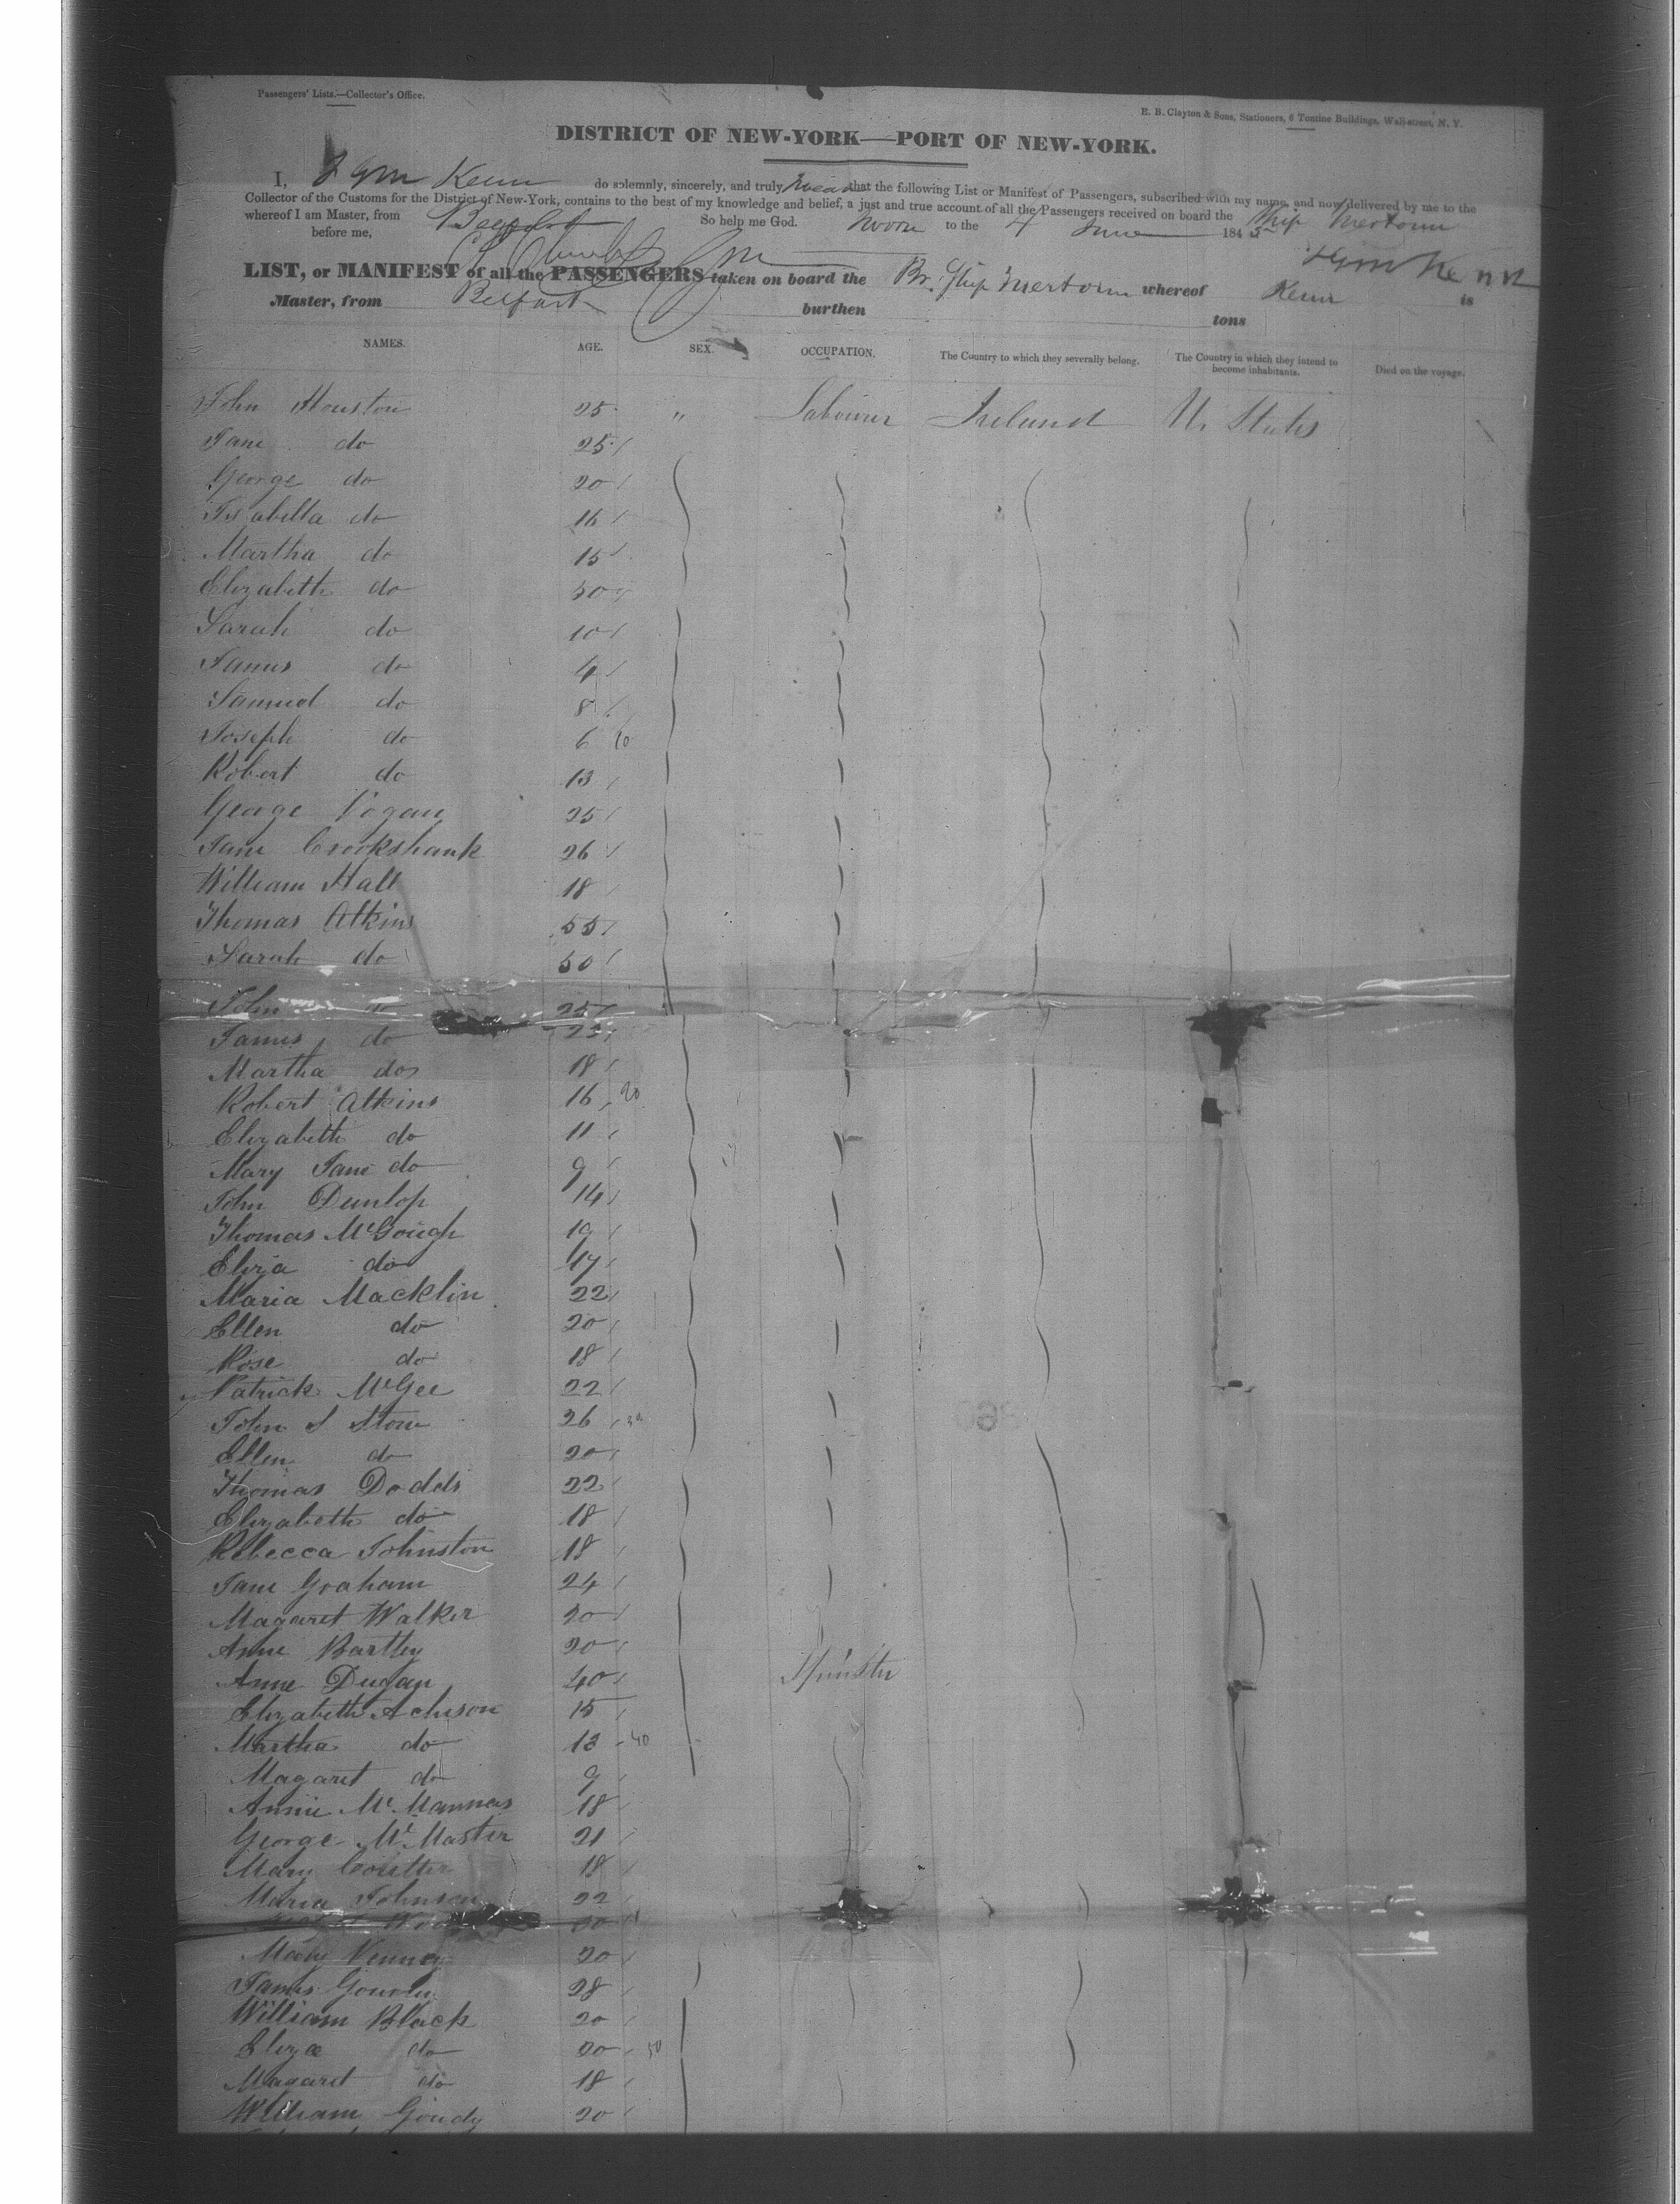 Passengers' Lists.—Collector's Office.
E. B. Clayton & Sons, Stationers, 6 Tontine Buildings, Wall-street, N. Y.
DISTRICT OF NEW-YORK—PORT OF NEW-YORK.
I, Kenn do solemnly, sincerely, and truly swear that the following List or Manifest of Passengers, subscribed with my name, and now delivered by me to the
Collector of the Customs for the District of New-York, contains to the best of my knowledge and belief, a just and true account of all the Passengers received on board the Ship
whereof I am Master, from Belfast So help me God. to the 4 June 1845
before me,
LIST, or MANIFEST of all the PASSENGERS taken on board the Br. Ship whereof Kenn is
Master, from Belfast burthen tons
NAMES. AGE. SEX. OCCUPATION. The Country to which they severally belong. The Country in which they intend to become inhabitants. Died on the voyage.
John Houston 25 " Labourer Ireland U. States
Jane do 25
George do 20
Isabella do 16
Martha do 15
Elizabeth do 50
Sarah do 10
James do 4
Samuel do 8
Joseph do 6 10
Robert do 13
George Vogan 25
Jane Crookshank 26
William Hall 18
Thomas Atkins 55
Sarah do 50
John 25
James do 23
Martha do 18
Robert Atkins 16 20
Elizabeth do 11
Mary Jane do 9
John Dunlop 14
Thomas McGough 19
Eliza do 17
Maria Macklin 22
Ellen do 20
Rose do 18
Patrick McGee 22
John S Stow 26 30
Ellen do 20
Thomas Dodds 22
Elizabeth do 18
Rebecca Johnston 18
Jane Graham 24
Magaret Walker 20
Anne Bartley 20
Anne Dugan 40 Spinster
Elizabeth Acheson 15
Martha do 13 40
Magaret do 9
Annie McMannas 18
George McMaster 21
Mary Coulter 18
Maria Johnson 22
Mary 20
James Gourly 28
William Black 20
Eliza do 20 50
Magaret do 18
William Goudy 20